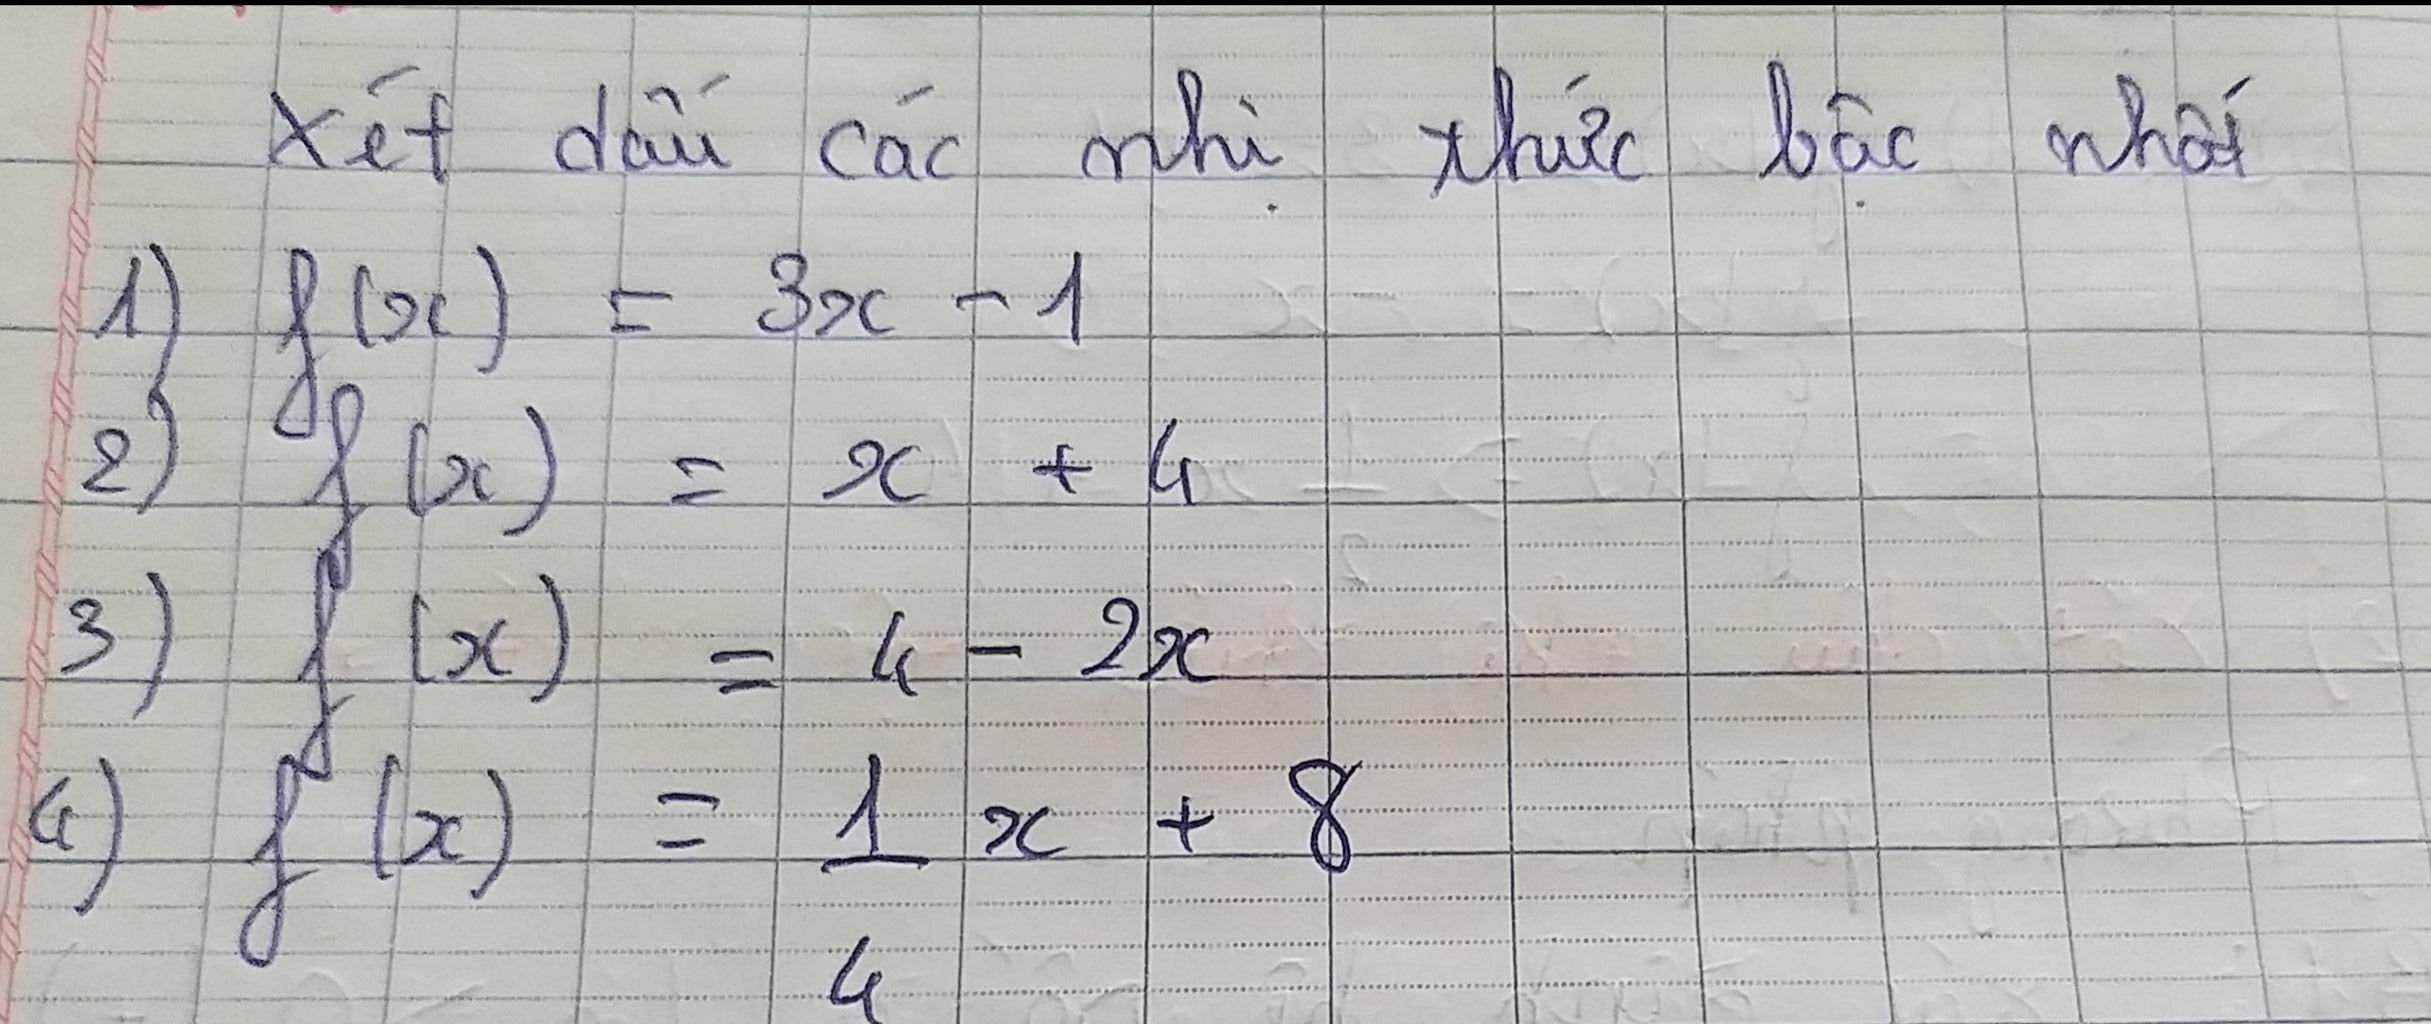 Xét dấu các nhị thức bậc nhất
1) f(x) = 3x - 1
2) f(x) = x + 4
3) f(x) = 4 - 2x
4) f(x) = 1/4 x + 8